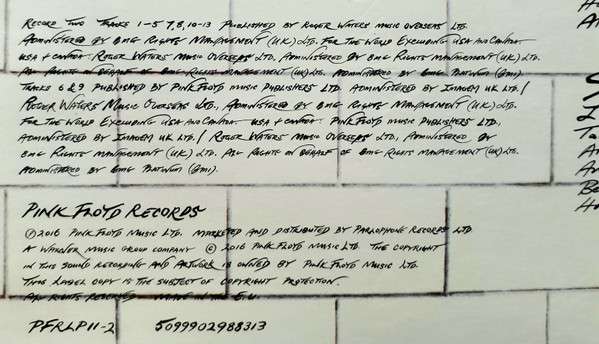 RECORD TWO TRACKS 1-5 7, 8, 10-13 PUBLISHED BY ROGER WATERS MUSIC OVERSEAS LTD.
ADMINISTERED BY BMG RIGHTS MANAGEMENT (UK) LTD. FOR THE WORLD EXCLUDING USA AND CANADA
USA & CANADA ROGER WATERS MUSIC OVERSEAS LTD. ADMINISTERED BY BMG RIGHTS MANAGEMENT (UK) LTD.
ALL RIGHTS IN BEHALF OF BMG RIGHTS MANAGEMENT (UK) LTD. ADMINISTERED BY BMG PLATINUM (BMI).
TRACKS 6 & 9 PUBLISHED BY PINK FLOYD MUSIC PUBLISHERS LTD. ADMINISTERED BY IMAGEM UK LTD. /
ROGER WATERS MUSIC OVERSEAS LTD., ADMINISTERED BY BMG RIGHTS MANAGEMENT (UK) LTD.
FOR THE WORLD EXCLUDING USA AND CANADA USA & CANADA PINK FLOYD MUSIC PUBLISHERS LTD.,
ADMINISTERED BY IMAGEM UK LTD. / ROGER WATERS MUSIC OVERSEAS LTD., ADMINISTERED BY
BMG RIGHTS MANAGEMENT (UK) LTD. ALL RIGHTS IN BEHALF OF BMG RIGHTS MANAGEMENT (UK) LTD.
ADMINISTERED BY BMG PLATINUM (BMI).
PINK FLOYD RECORDS
℗ 2016 PINK FLOYD MUSIC LTD. MARKETED AND DISTRIBUTED BY PARLOPHONE RECORDS LTD
A WARNER MUSIC GROUP COMPANY © 2016 PINK FLOYD MUSIC LTD. THE COPYRIGHT
IN THIS SOUND RECORDING AND ARTWORK IS OWNED BY PINK FLOYD MUSIC LTD.
THIS LABEL COPY IS THE SUBJECT OF COPYRIGHT PROTECTION.
ALL RIGHTS RESERVED MADE IN THE E.U.
PFRLP11-2 5099902988313